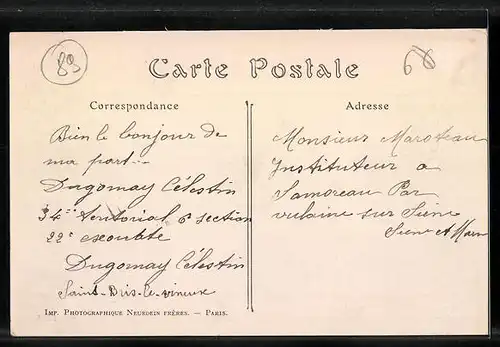 89
68
Carte Postale
Correspondance
Bien le bonjour de
ma part
Dugomay Célestin
34e territorial 6e section
22e escouade
Dugomay Célestin
Saint-Bris-le-vineux
Imp. Photographique Neurdein frères. — Paris.
Adresse
Monsieur Maroteau
Instituteur a
Samoreau Par
vulaine sur Seine
Seine et Marn